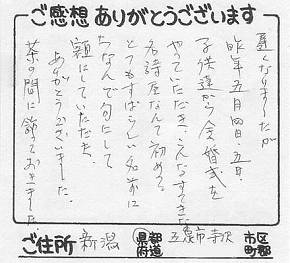 ご感想 ありがとうございます
遅くなりましたが
昨年五月四日、五日、
子供達から金婚式を
やっていただき、こんなすてきな
名詩なんて初めて。
とてもすばらしい名前に
ちなんで句にして
額にしていただき、
ありがとうございました。
茶の間に飾っておきました
ご住所 新潟 都道府県 五泉市寺沢 市区町郡